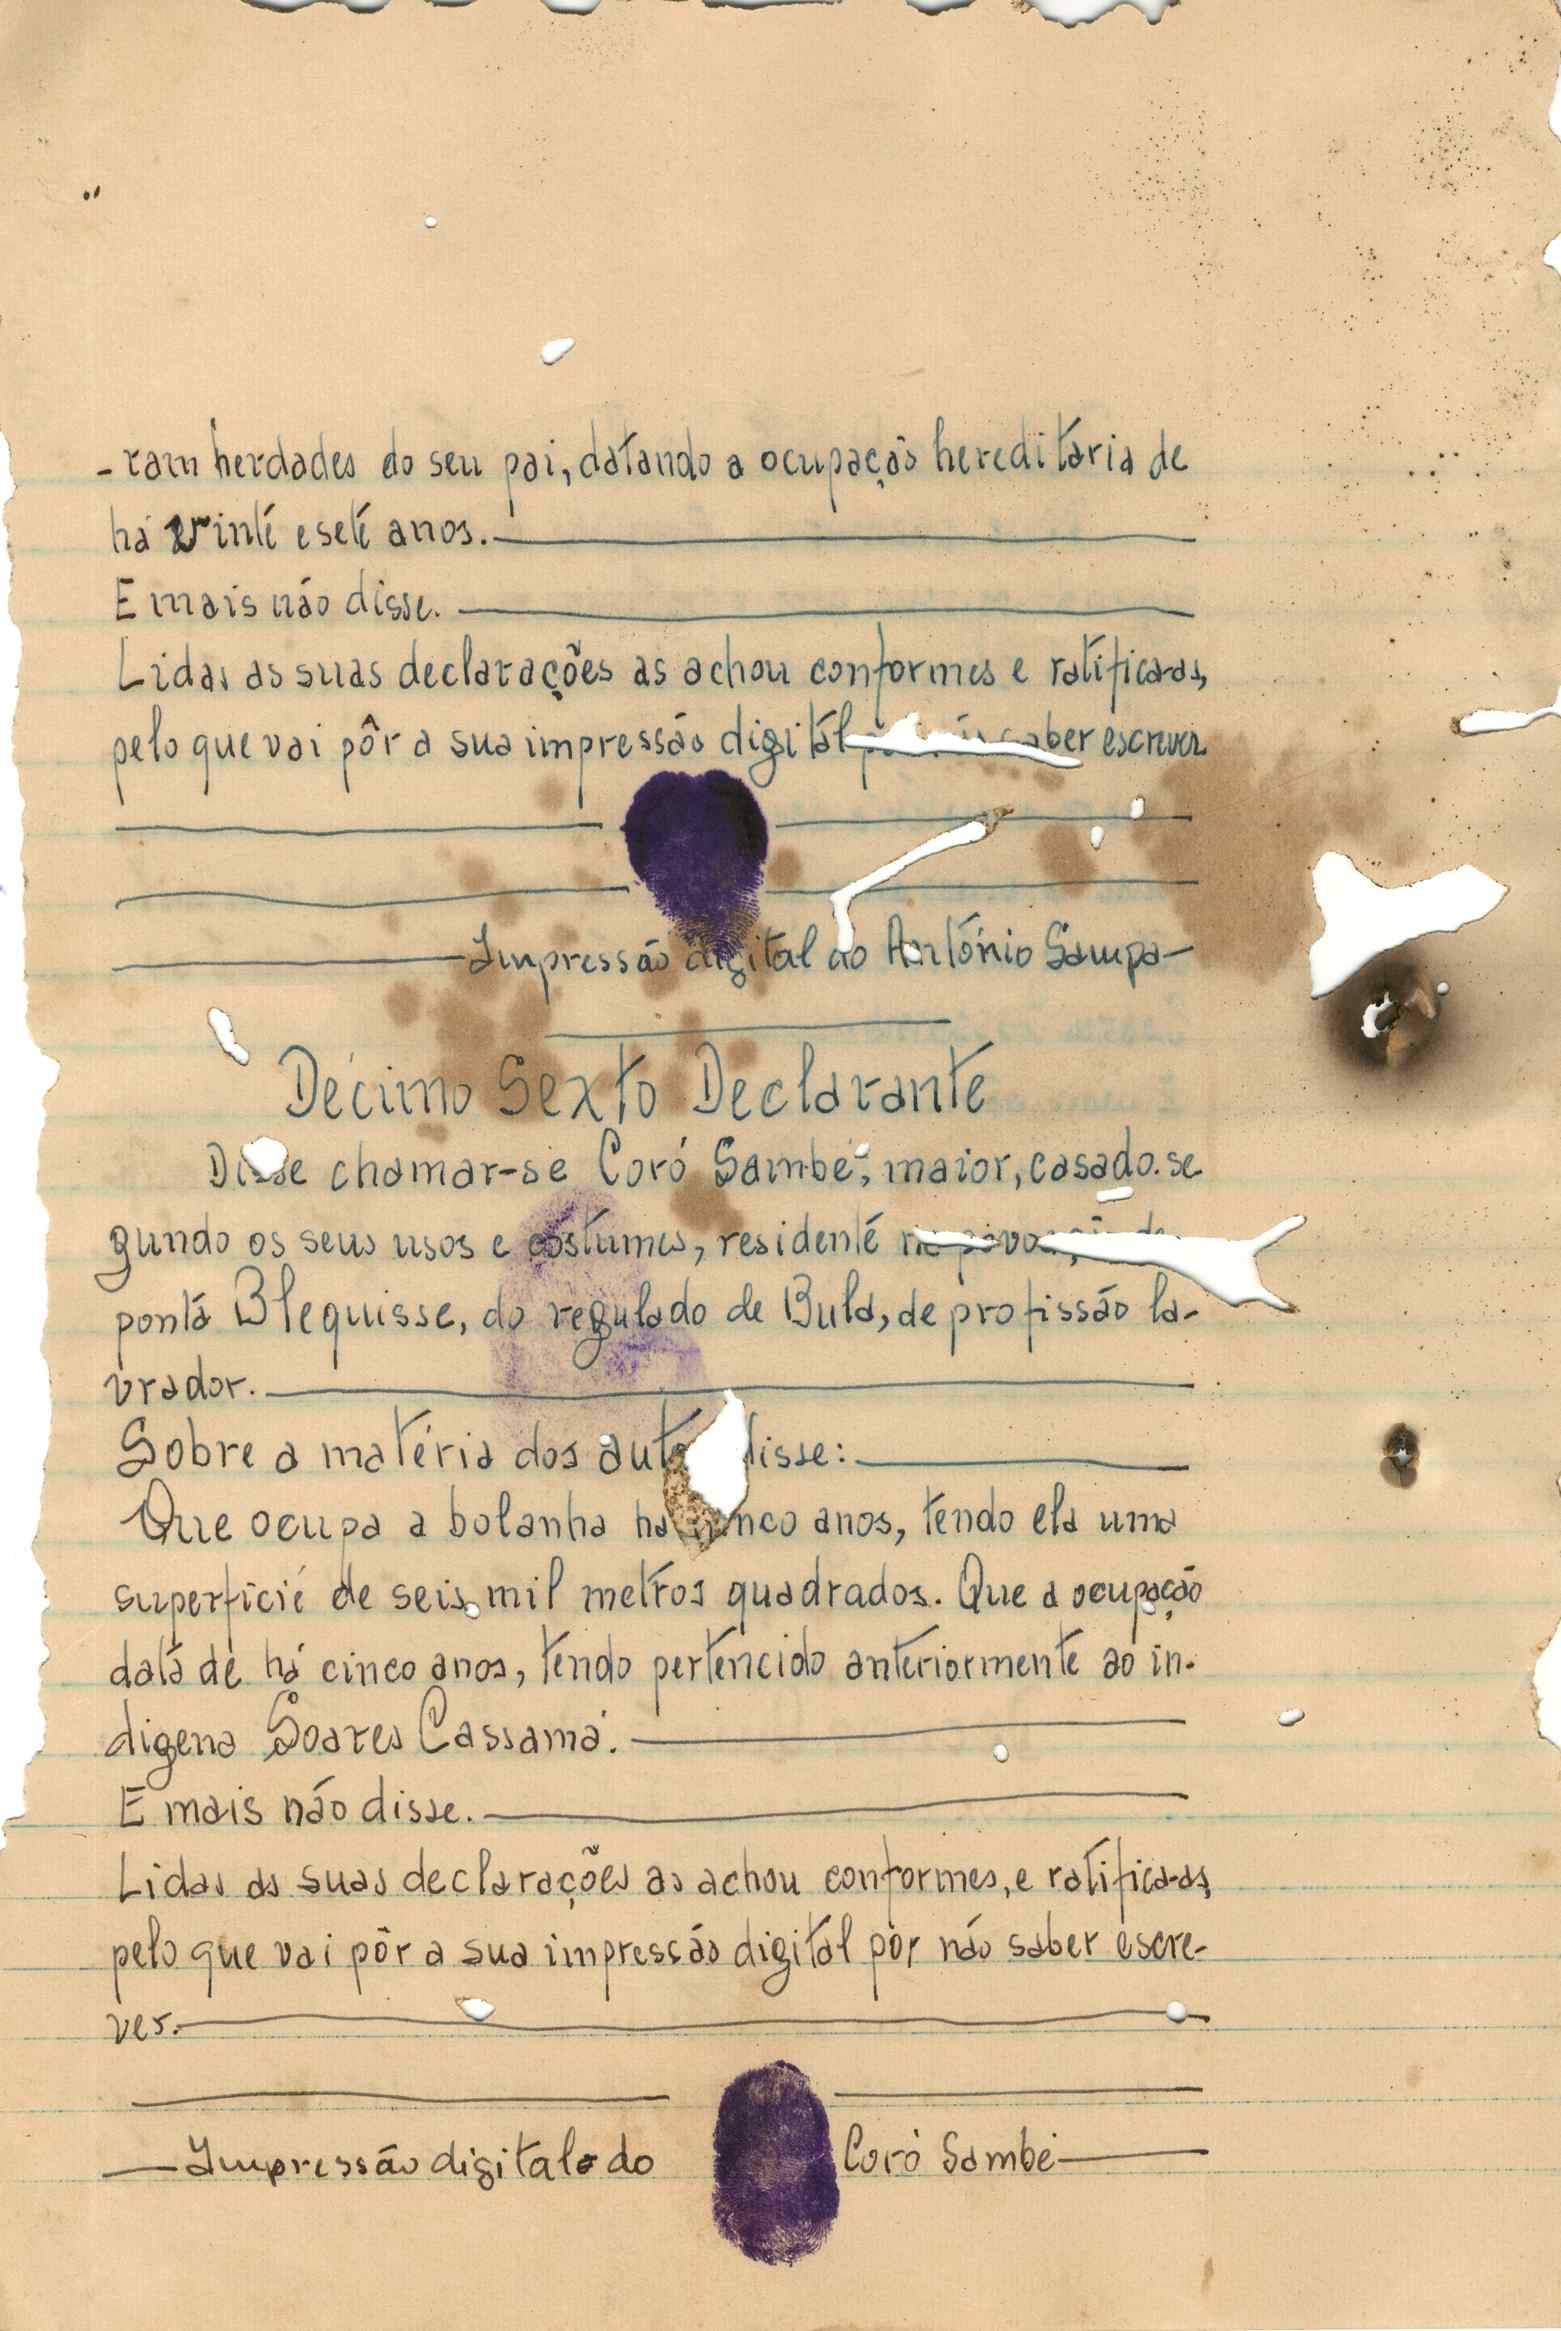 -ram herdades do seu pai, datando a ocupação hereditaria de
há vinte e sete anos.
E mais não disse.
Lidas as suas declarações as achou conformes e ratifica-as,
pelo que vai pôr a sua impressão digital saber escrever
Impressão digital do António Sampa
Décimo Sexto Declarante
Disse chamar-se Coró Sambé, maior, casado. se
gundo os seus usos e costumes, residente
ponta Blequisse, do regulado de Bula, de profissão la-
vrador.
Sobre a matéria dos disse:
Que ocupa a bolanha há cinco anos, tendo ela uma
superficie de seis mil metros quadrados. Que a ocupação
data de há cinco anos, tendo pertencido anteriormente ao in-
digena Soares Cassamá.
E mais não disse.
Lidas as suas declarações as achou conformes, e ratifica-as,
pelo que vai pôr a sua impressão digital por não saber escre-
ver.
Impressão digital do Coró Sambé